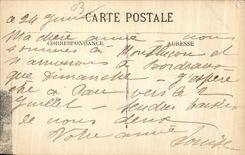 à 24 Juin 03
CARTE POSTALE
CORRESPONDANCE
ADRESSE
Ma chère amie — nous
sommes à Montluçon et
n'arriverons à Bordeaux
que Dimanche — J'espère
être à Pau vers le 2
Juillet — Tendres baisers
de nous deux
Votre amie
Louise